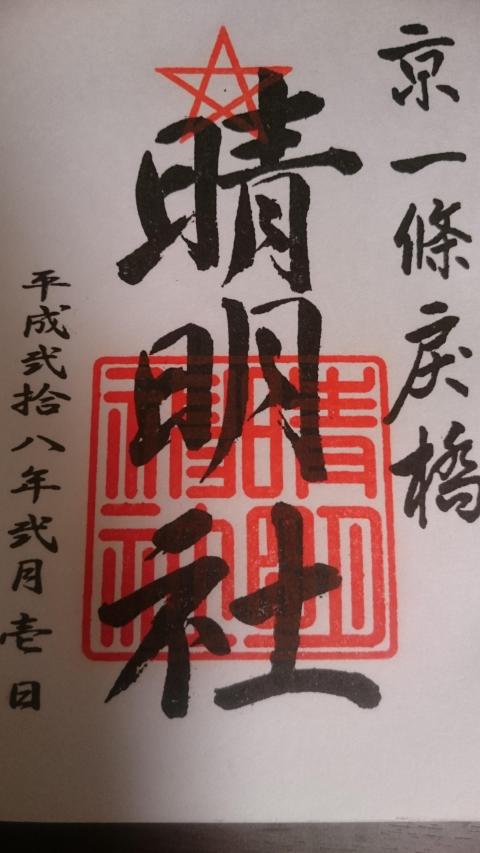 京一條戻橋
晴明社
晴明
神社
平成弐拾八年弐月壱日